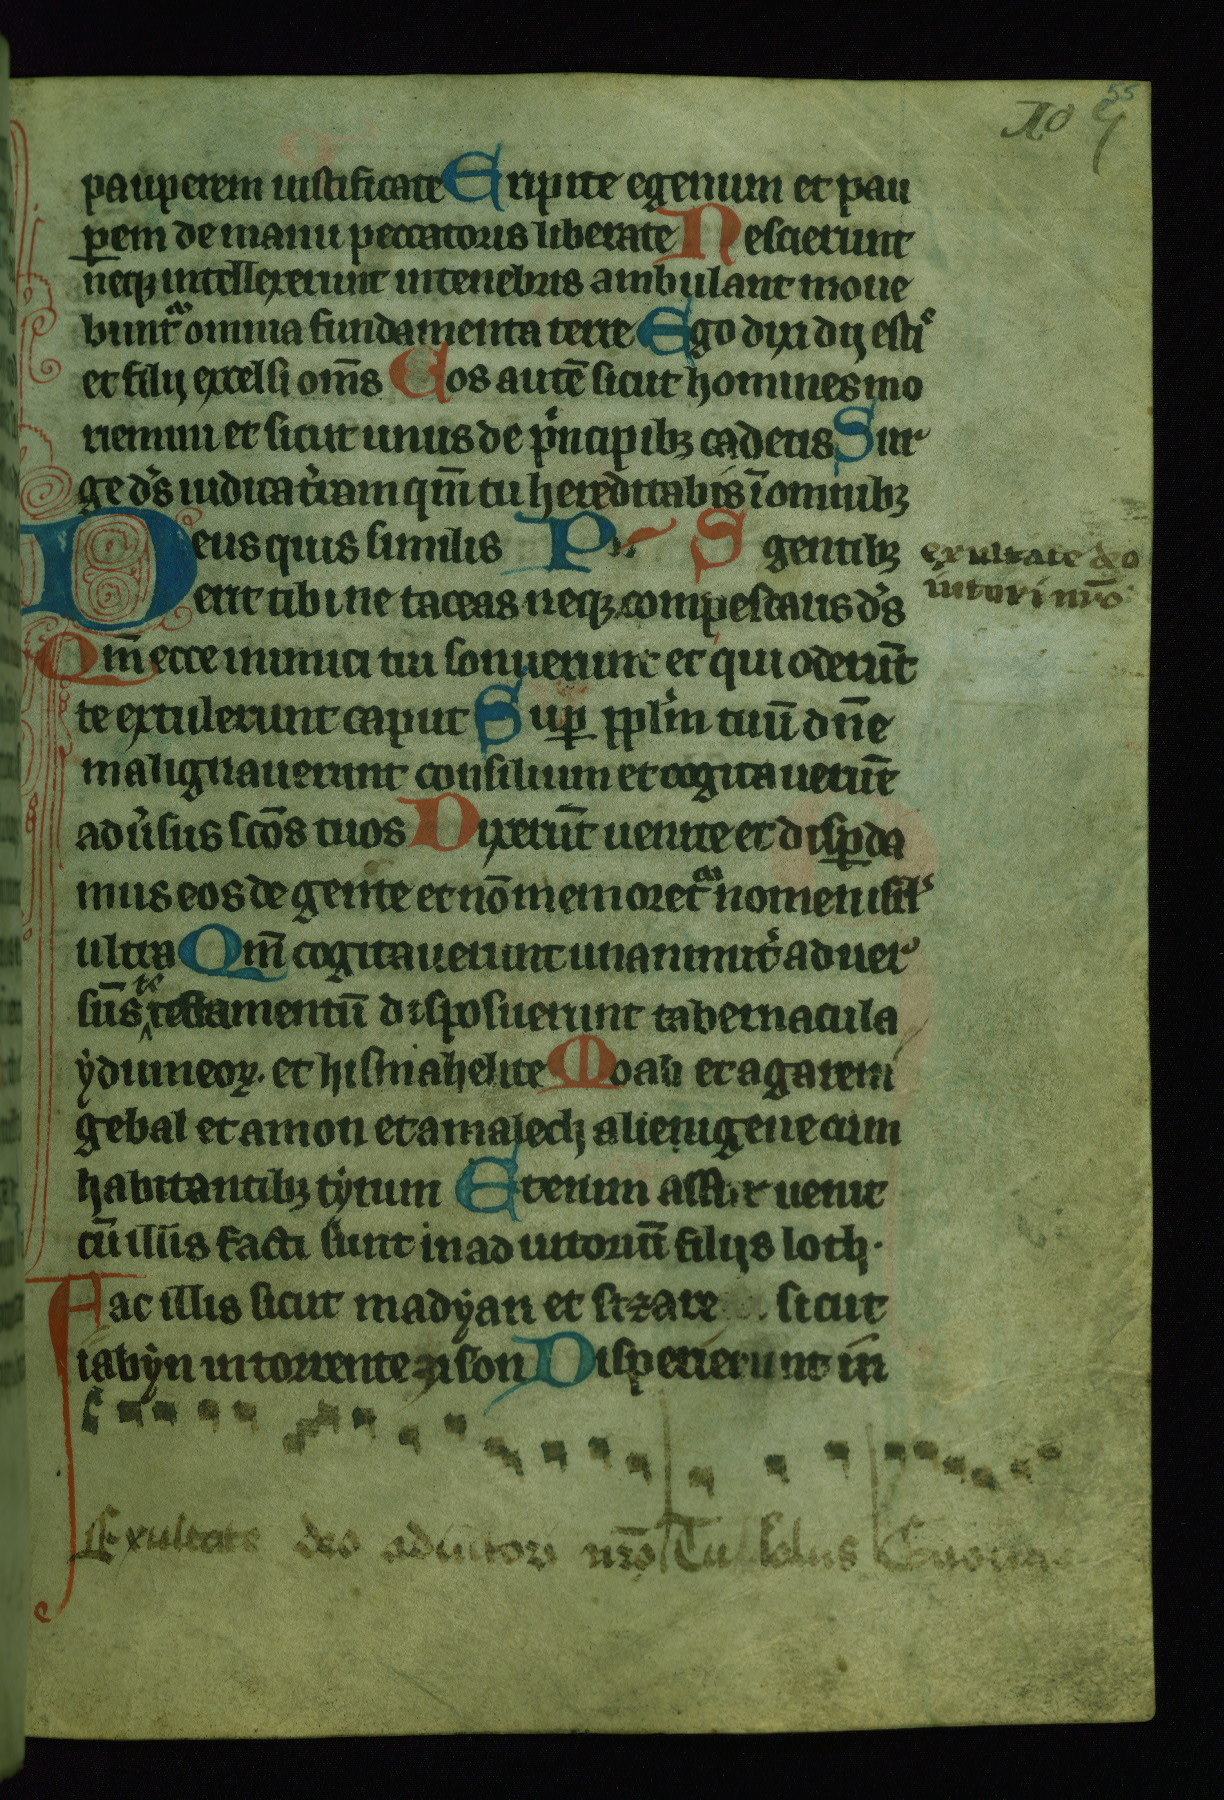 55
pauperem iustificate Eripite egenum et pau
ꝑem de manu peccatoris liberate Nescierunt
neqꝫ intellexerunt intenebris ambulant moue
buntᷓ omnia fundamenta terre Ego dixi dij estiˢ
et filij excelsi om̄s Uos autē sicut homines mo
riemini et sicut unus de pͥncipibꝫ cadetis Sur
ge dˢ iudica tͥram qm̄ tu hereditabis ī omnibꝫ
Deus quis similis Pˢ S gentibꝫ
erit tibi ne taceas neqꝫ compescaris dˢ
Qm̄ ecce inimici tui sonuerunt et qui oderūt
te extulerunt caput Suꝑ pplͥm tuū dn̄e
malignauerunt consilium et cogitauerūt
aduͥsus scōs tuos Dixerūt uenite et disꝑda
mus eos de gente et nō memoretᷓ nomen isrlˢ
ultra Qm̄ cogitauerunt unanimitͥ aduer
sūs te testamentū disposuerunt tabernacula
ydumeoꝝ. et hismahelite Moab et agareni
gebal et amon et amalech alienigene cum
habitantibꝫ tyrum Etenim assur uenit
cū illis facti sunt in adiutoriū filijs loth.
Fac illis sicut madyan et sizare sicut
iabyn in torrente cison Disperierunt in
exultate deo
iutori nrō
Exultate deo adiutori nrō Tu solus Euouae